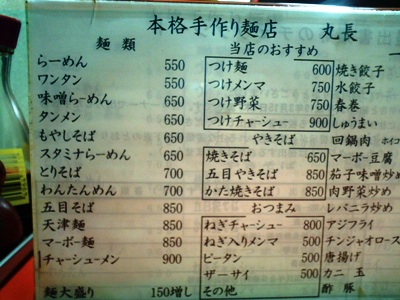 本格手作り麺店 丸長
麺類
らーめん 550
ワンタン 550
味噌らーめん 650
タンメン 650
もやしそば 650
スタミナらーめん 650
とりそば 700
わんたんめん 700
五目そば 850
天津麺 850
マーボー麺 850
チャーシューメン 900
麺大盛り 150増し
当店のおすすめ
つけ麺 600
つけメンマ 750
つけ野菜 750
つけチャーシュー 900
やきそば
焼きそば 650
五目やきそば 850
かた焼きそば 850
おつまみ
ねぎチャーシュー 800
ねぎ入りメンマ 500
ピータン 500
ザーサイ 500
その他
焼き餃子
水餃子
春巻
しゅうまい
回鍋肉 ホイコ
マーボー豆腐
茄子味噌炒め
肉野菜炒め
レバニラ炒め
アジフライ
チンジャオロース
唐揚げ
カニ玉
酢豚